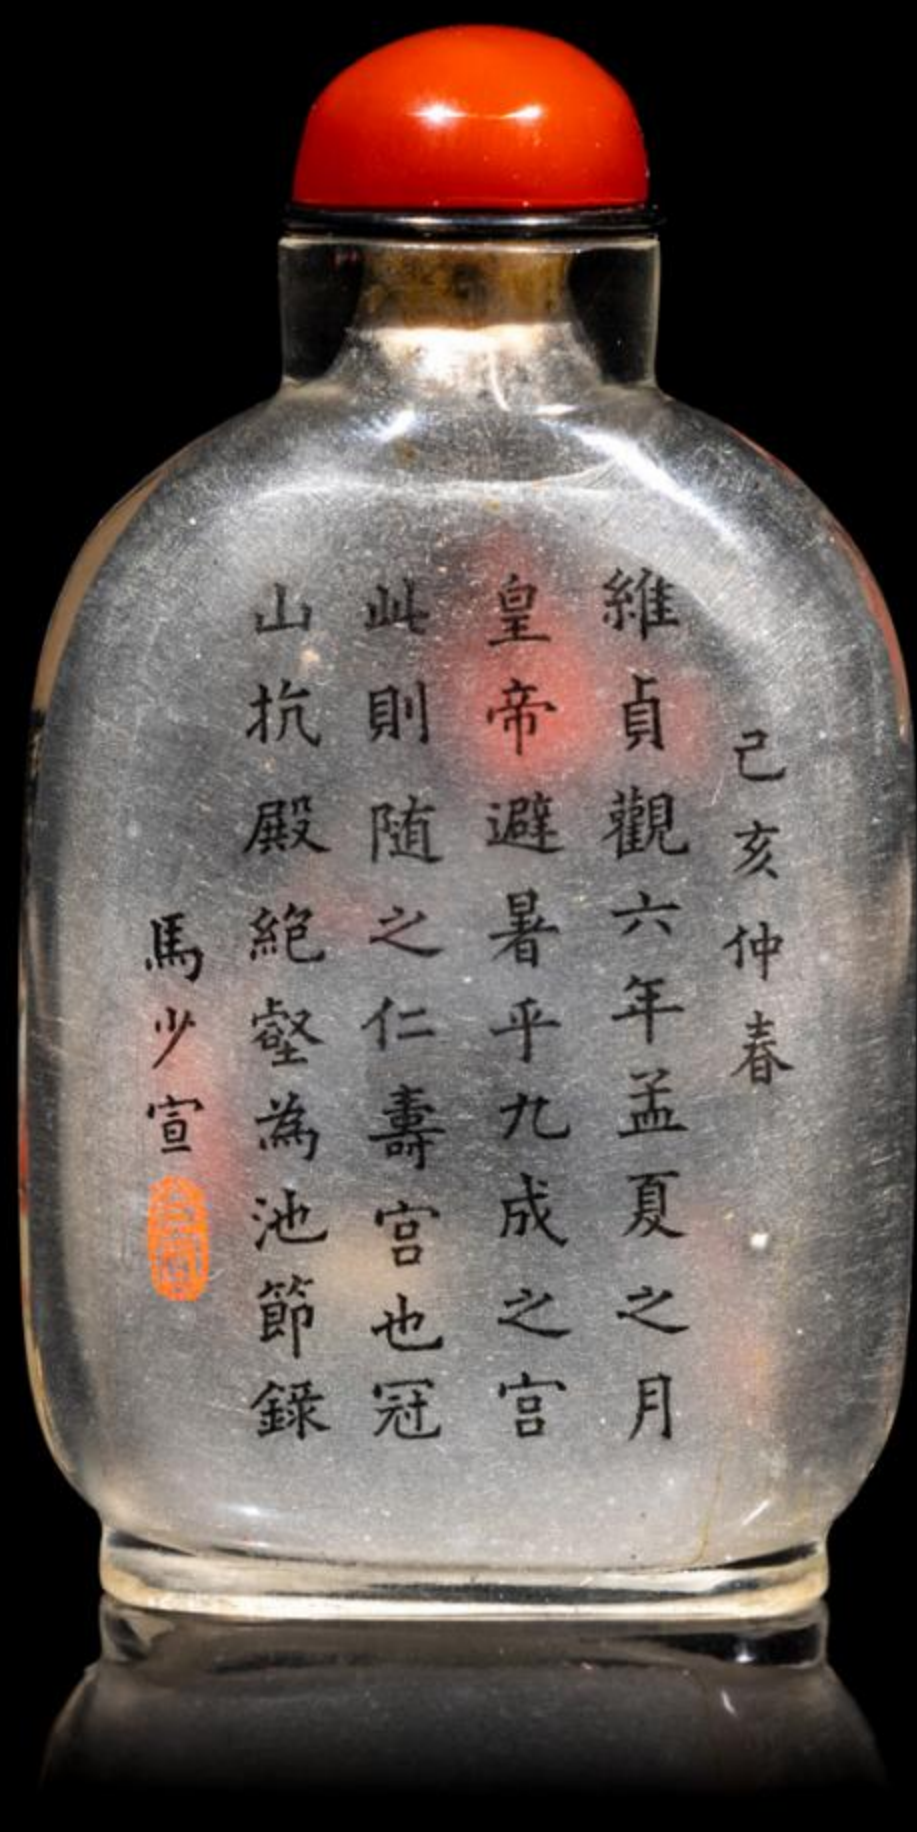 己亥仲春
維貞觀六年孟夏之月
皇帝避暑乎九成之宮
此則随之仁壽宮也冠
山抗殿絕壑為池節錄
馬少宣